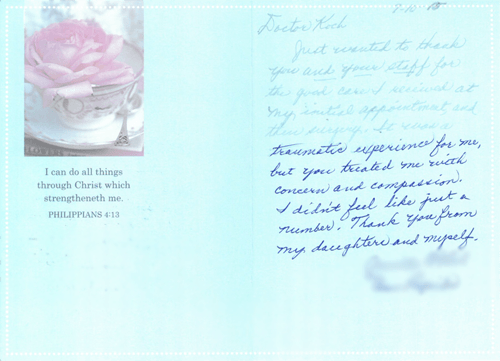 I can do all things
through Christ which
strengtheneth me.
PHILIPPIANS 4:13
Doctor Koch
Just wanted to thank
you and your staff for
the good care I received at
my initial appointment and
then surgery. It was a
traumatic experience for me,
but you treated me with
concern and compassion.
I didn't feel like just a
number. Thank you from
my daughters and myself.